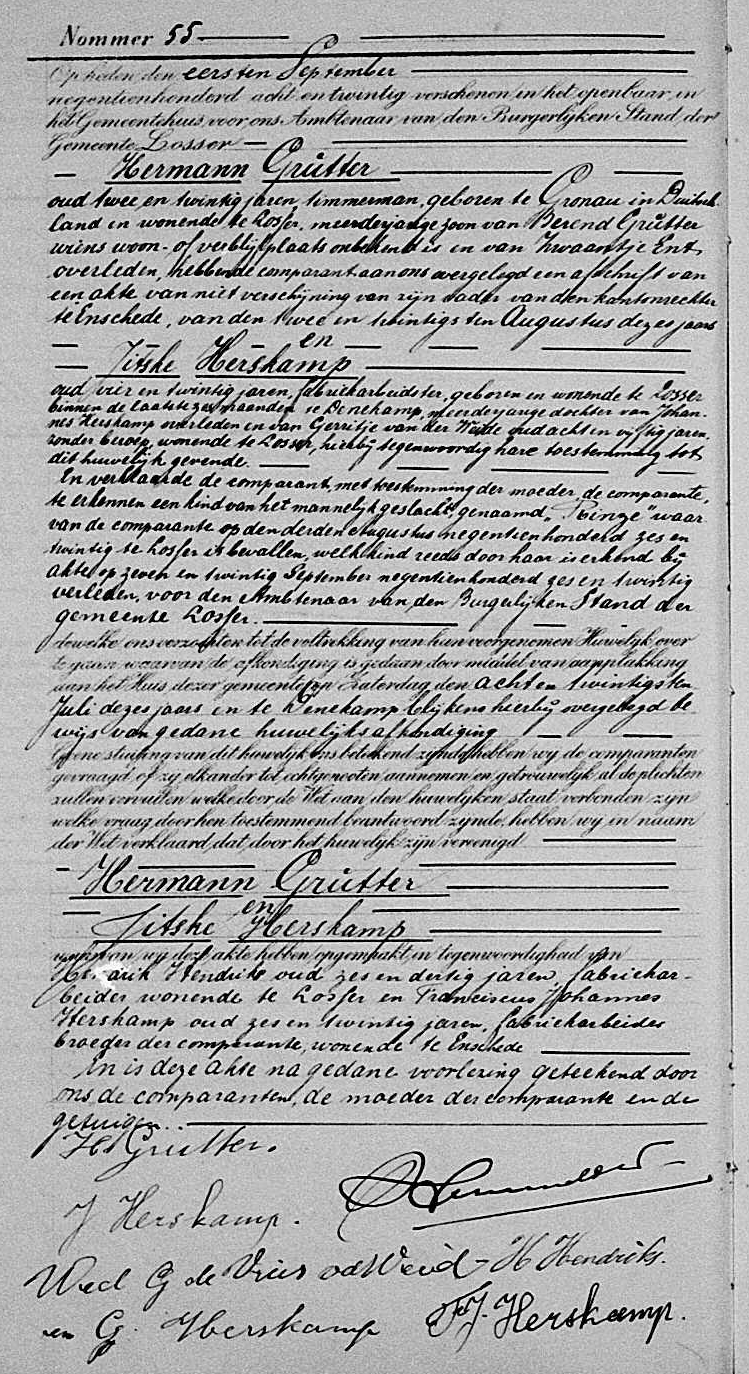 Nommer 55
Op heden den eersten September
negentienhonderd acht en twintig verschenen in het openbaar, in
het Gemeentehuis, voor ons Ambtenaar van den Burgerlijken Stand der
Gemeente Losser
Hermann Grütter
oud twee en twintig jaren, timmerman, geboren te Gronau in Duitsch-
land en wonende te Losser, meerderjarige zoon van Berend Grütter
wiens woon- of verblijfplaats onbekend is en van Zwaantje Ent,
overleden, hebbende comparant aan ons overgelegd een afschrift van
een akte van niet verschijning van zijn vader van den kantonrechter
te Enschede, van den twee en twintigsten Augustus dezes jaars
en
Jitske Herskamp
oud vier en twintig jaren, fabriekarbeidster, geboren en wonende te Losser
binnen de laatste zes maanden te Denekamp, meerderjarige dochter van Johan-
nes Herskamp overleden en van Gerritje van der Weide oud acht en vijftig jaren,
zonder beroep, wonende te Losser, hierbij tegenwoordig hare toestemming tot
dit huwelijk gevende.
En verklaarde de comparant, met toestemming der moeder, de comparante,
te erkennen een kind van het mannelijk geslacht, genaamd "Rinze" waar
van de comparante op den derden Augustus negentienhonderd zes en
twintig te Losser is bevallen, welk kind reeds door haar is erkend bij
akte op zeven en twintig September negentienhonderd zes en twintig
verleden, voor den Ambtenaar van den Burgerlijken Stand der
gemeente Losser.
dewelke ons verzochten tot de voltrekking van hun voorgenomen Huwelijk over
te gaan waarvan de afkondiging is gedaan door middel van aanplakking
aan het Huis dezer gemeente op Zaterdag den acht en twintigsten
Juli dezes jaars en te Denekamp blijkens hierbij overgelegd be
wijs van gedane huwelijksafkondiging
Geene stuiting van dit huwelijk ons beteekend zijnde, hebben wij de comparanten
gevraagd of zij elkander tot echtgenooten aannemen en getrouwelijk al de plichten
zullen vervullen welke door de Wet aan den huwelijken staat verbonden zijn
welke vraag door hen toestemmend beantwoord zijnde, hebben wij in naam
der Wet verklaard, dat door het huwelijk zijn vereenigd
Hermann Grütter
en
Jitske Herskamp
waarvan wij deze akte hebben opgemaakt in tegenwoordigheid van
Hendrik Hendriks oud zes en dertig jaren, fabriekar-
beider wonende te Losser en Franciscus Johannes
Herskamp oud zes en twintig jaren, fabriekarbeider
broeder der comparante, wonende te Enschede
En is deze akte na gedane voorlezing geteekend door
ons, de comparanten, de moeder der comparante en de
getuigen.
H. Grütter.
J Herskamp.
Wed G de Vries vd Weid - H Hendriks.
en G. Herskamp F.J. Herskamp.